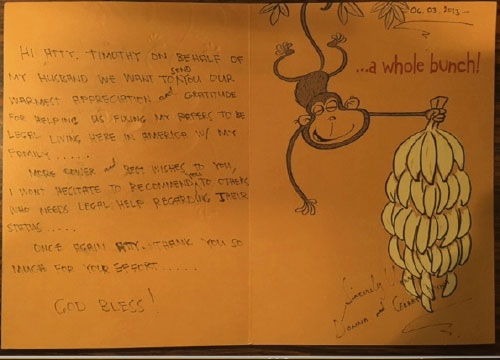 HI ATTY. TIMOTHY ON BEHALF OF
MY HUSBAND WE WANT TO SEND YOU OUR
WARMEST APPRECIATION and GRATITUDE
FOR HELPING US FIXING MY PAPERS TO BE
LEGAL LIVING HERE IN AMERICA W/ MY
FAMILY.....
MORE POWER and BEST WISHES TO YOU,
I WONT HESITATE TO RECOMMEND you TO OTHERS
WHO NEEDS LEGAL HELP REGARDING THEIR
STATUS....
ONCE AGAIN ATTY. THANK YOU SO
MUCH FOR YOUR EFFORT......
GOD BLESS!
06.03.2013
...a whole bunch!
Sincerely!!
Donna and